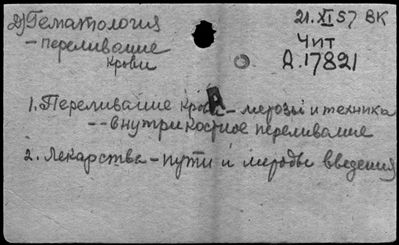 2) Гематология
21.XI 57 ВК
- переливание
крови
Чит
Д.17821
1. Переливание крови - методы и техника
-- внутрикостное переливание
2. Лекарства - пути и методы введения